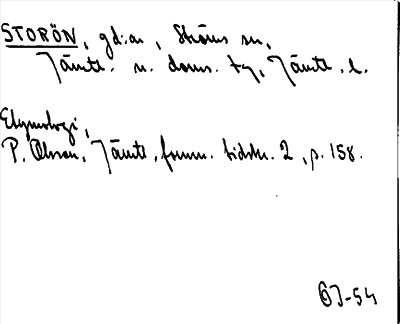 STORÖN, gd:ar, Ströms sn,
Jämtl. n. doms. tg, Jämtl. l.
Etymologi,
P. Olsson, Jämtl, fornm. tidskr. 2, p. 158.
OJ-54